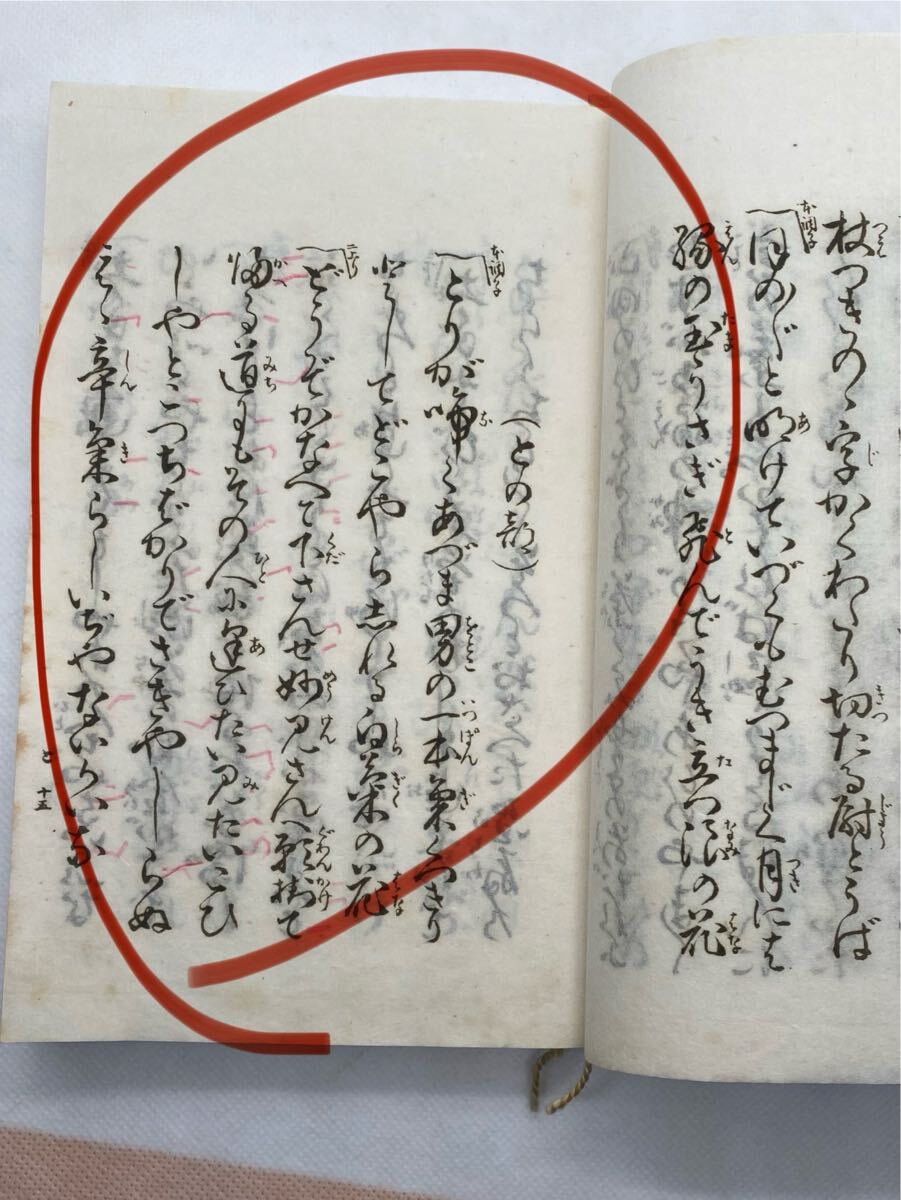 杖つきのゝ字かくわたり切たる尉とうば
本調子
〽月の〴〵と明けていづくもむつまじく月には
弱の玉うさぎ飛んでうき立つ浪の花
(との部)
本調子
〽とりが啼くあづま男の一本気くつきり
としてどこやらしれる白菊の花
二上り
〽どうぞかなへて下さんせ妙見さんへ願掛て
帰る道にもその人に逢ひたい見たいこひ
しやとこつちばかりでさきやしらぬ
ヱヽ辛気らしいぢやないかいな
と 十五